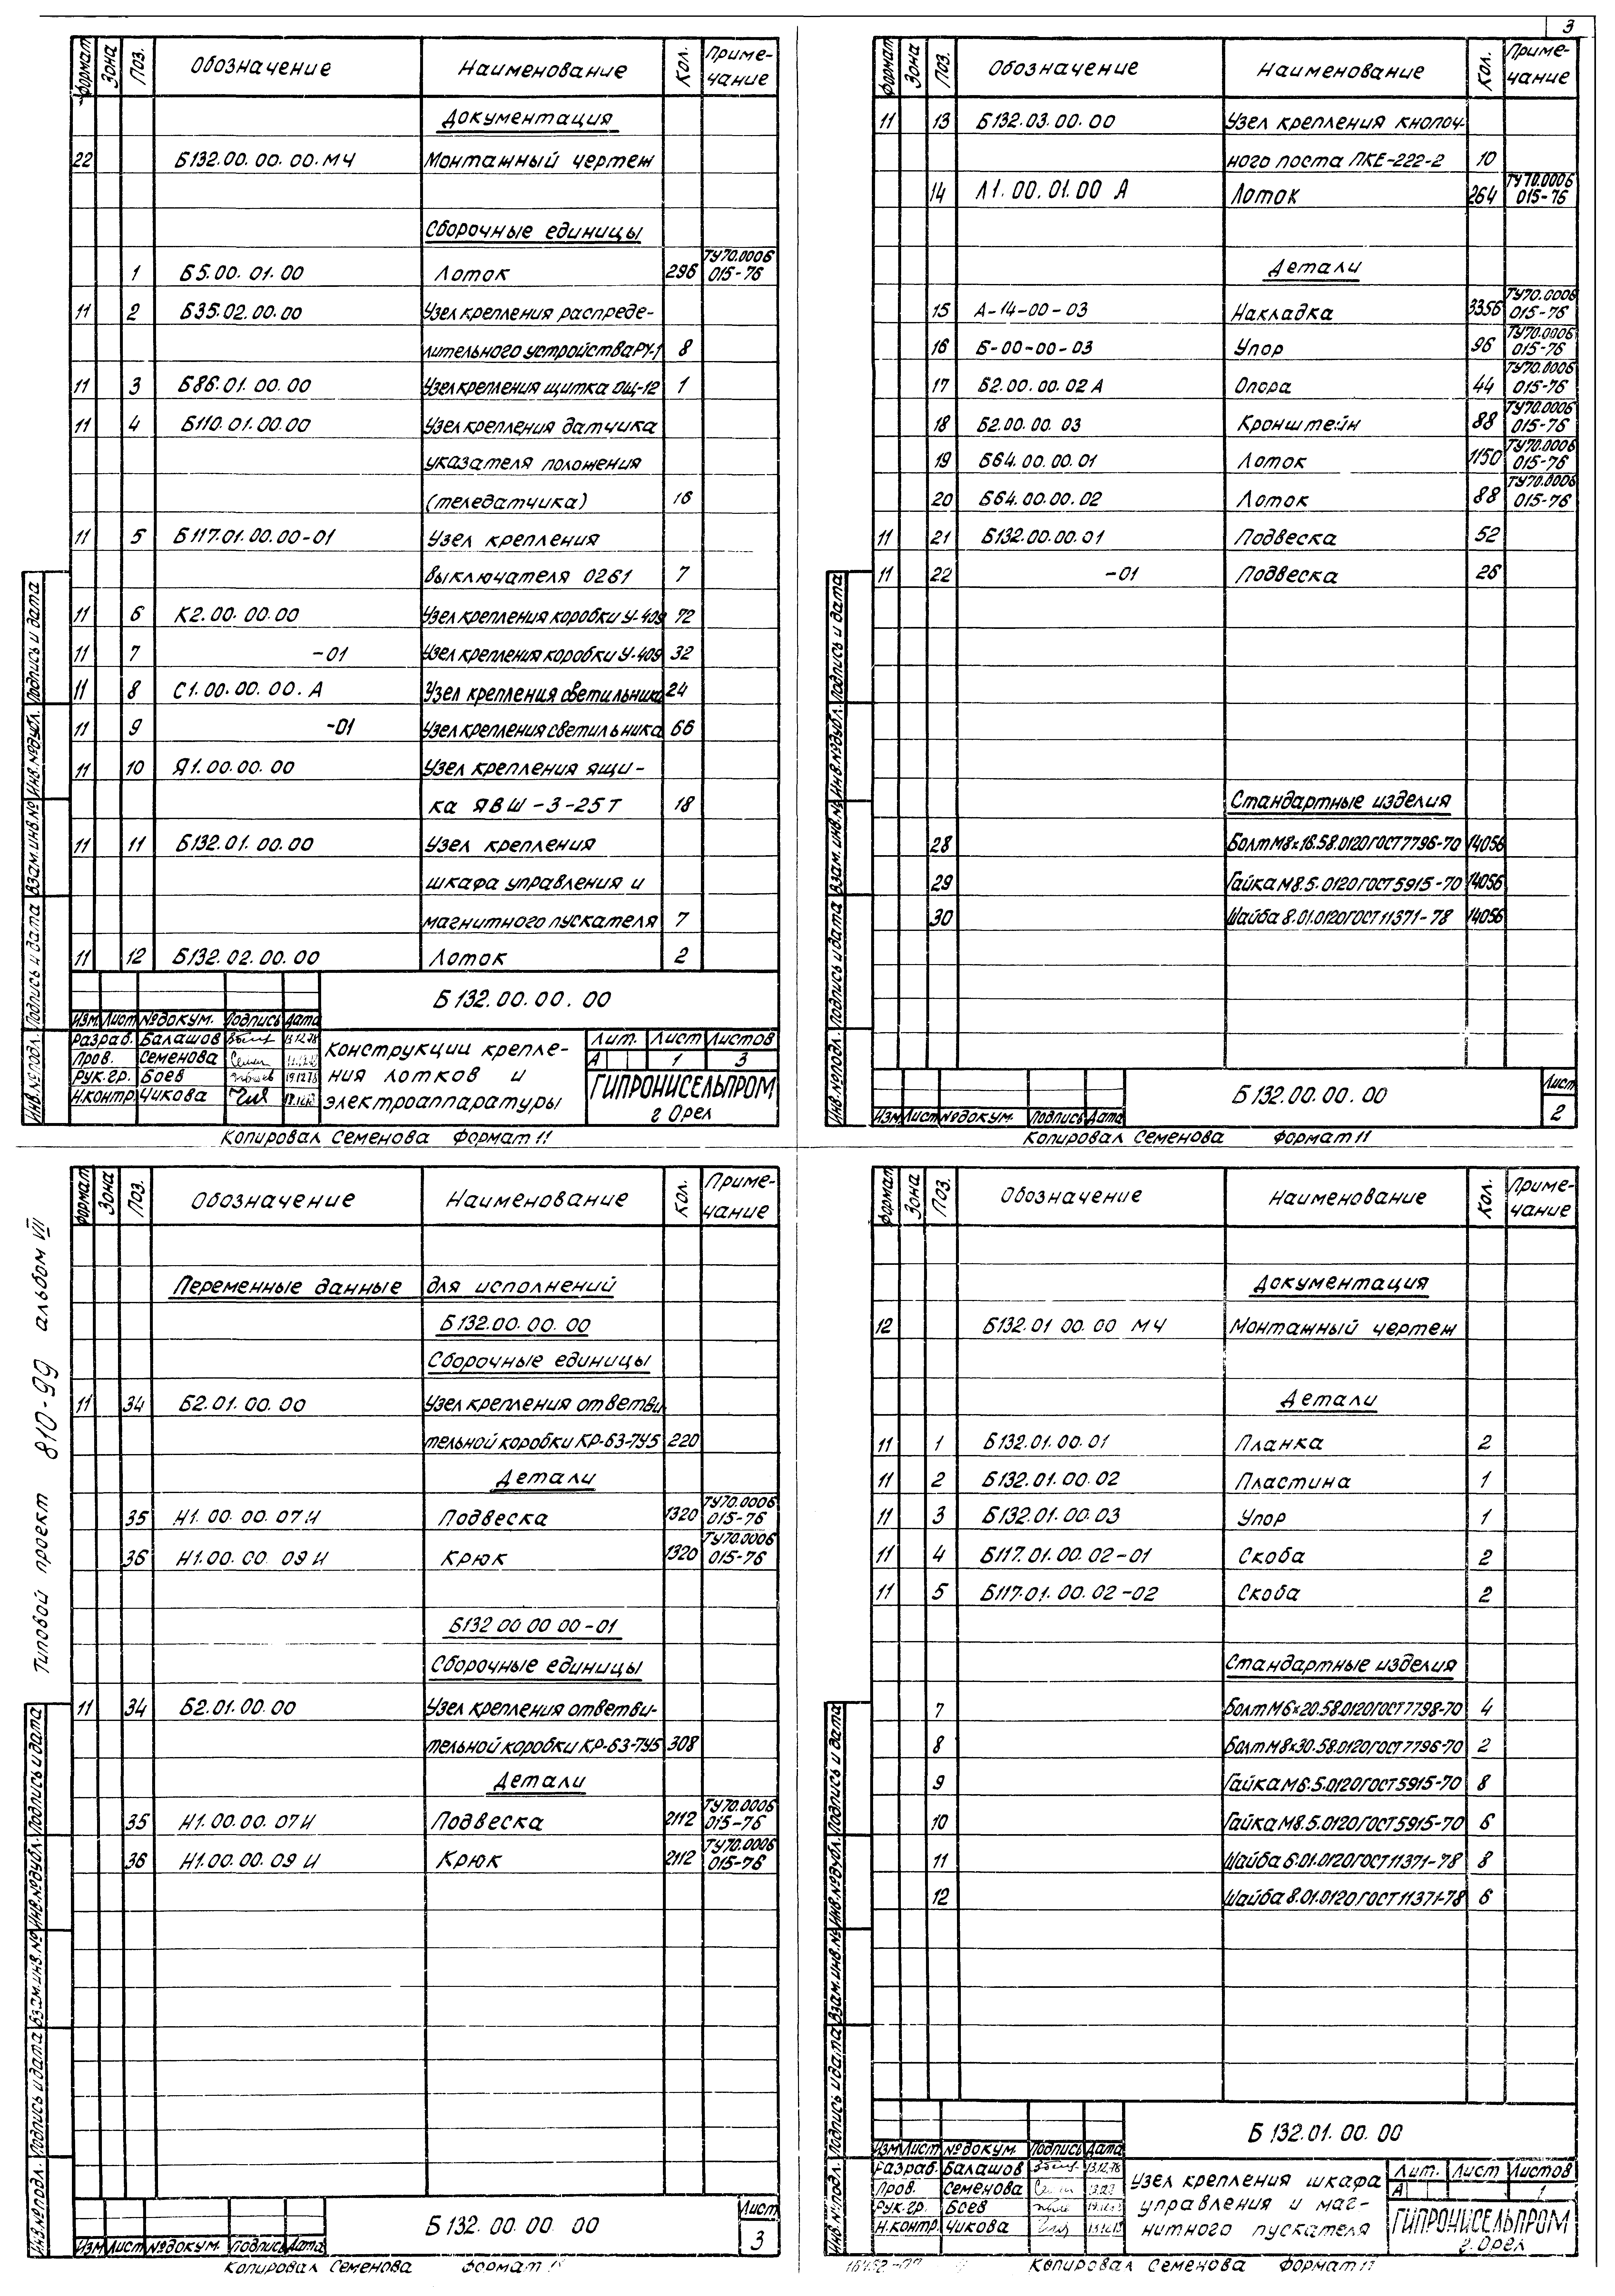 3
Формат Зона Поз. Обозначение Наименование Кол. Приме-
чание
Документация
22 Б132.00.00.00.МЧ Монтажный чертеж
Сборочные единицы
1 Б5.00.01.00 Лоток 296 ТУ70.0006
015-76
11 2 Б35.02.00.00 Узел крепления распреде-
лительного устройства РУ-1 8
11 3 Б86.01.00.00 Узел крепления щитка ОЩ-12 1
11 4 Б110.01.00.00 Узел крепления датчика
указателя положения
(теледатчика) 16
11 5 Б117.01.00.00-01 Узел крепления
выключателя 0261 7
11 6 К2.00.00.00 Узел крепления коробки У-409 72
11 7 -01 Узел крепления коробки У-409 32
11 8 С1.00.00.00.А Узел крепления светильника 24
11 9 -01 Узел крепления светильника 66
11 10 Я1.00.00.00 Узел крепления ящи-
ка ЯВШ-3-25Т 18
11 11 Б132.01.00.00 Узел крепления
шкафа управления и
магнитного пускателя 7
11 12 Б132.02.00.00 Лоток 2
Б132.00.00.00
Изм. Лист № докум. Подпись Дата
Разраб. Балашов 13.12.78
Пров. Семенова
Рук.гр. Боев 19.12.78
Н.контр. Чикова
Конструкции крепле-
ния лотков и
электроаппаратуры
Лит. Лист Листов
А 1 3
ГИПРОНИСЕЛЬПРОМ
г Орел
Инв.№подл. Подпись и дата Взам.инв.№ Инв.№дубл. Подпись и дата
Копировал Семенова Формат 11
Формат Зона Поз. Обозначение Наименование Кол. Приме-
чание
11 13 Б132.03.00.00 Узел крепления кнопоч-
ного поста ПКЕ-222-2 10
14 Л1.00.01.00 А Лоток 264 ТУ70.0006
015-76
Детали
15 А-14-00-03 Накладка 3356 ТУ70.0006
015-76
16 Б-00-00-03 Упор 96 ТУ70.0006
015-76
17 Б2.00.00.02 А Опора 44 ТУ70.0006
015-76
18 Б2.00.00.03 Кронштейн 88 ТУ70.0006
015-76
19 Б64.00.00.01 Лоток 1150 ТУ70.0006
015-76
20 Б64.00.00.02 Лоток 88 ТУ70.0006
015-76
11 21 Б132.00.00.01 Подвеска 52
11 22 -01 Подвеска 26
Стандартные изделия
28 Болт М8×16.58.0120 ГОСТ 7796-70 14056
29 Гайка М8.5.0120 ГОСТ 5915-70 14056
30 Шайба 8.01.0120 ГОСТ 11371-78 14056
Б132.00.00.00
Лист
2
Изм. Лист № докум. Подпись Дата
Инв.№подл. Подпись и дата Взам.инв.№ Инв.№дубл. Подпись и дата
Копировал Семенова Формат 11
Типовой проект 810-99 альбом VII
Формат Зона Поз. Обозначение Наименование Кол. Приме-
чание
Переменные данные для исполнений
Б132.00.00.00
Сборочные единицы
11 34 Б2.01.00.00 Узел крепления ответви
тельной коробки КР-63-7У5 220
Детали
35 Н1.00.00.07И Подвеска 1320 ТУ70.0006
015-76
36 Н1.00.00.09 И Крюк 1320 ТУ70.0006
015-76
Б132 00 00 00-01
Сборочные единицы
11 34 Б2.01.00.00 Узел крепления ответви-
тельной коробки КР-63-7У5 308
Детали
35 Н1.00.00.07И Подвеска 2112 ТУ70.0006
015-76
36 Н1.00.00.09 И Крюк 2112 ТУ70.0006
015-76
Б132.00.00.00
Лист
3
Изм Лист № докум. Подпись Дата
Инв.№подл. Подпись и дата Взам.инв.№ Инв.№дубл. Подпись и дата
Копировал Семенова Формат
Формат Зона Поз. Обозначение Наименование Кол. Приме-
чание
Документация
12 Б132.01 00.00 МЧ Монтажный чертеж
Детали
11 1 Б132.01.00.01 Планка 2
11 2 Б132.01.00.02 Пластина 1
11 3 Б132.01.00.03 Упор 1
11 4 Б117.01.00.02-01 Скоба 2
11 5 Б117.01.00.02-02 Скоба 2
Стандартные изделия
7 Болт М6×20.58.0120 ГОСТ 7798-70 4
8 Болт М8×30.58.0120 ГОСТ 7796-70 2
9 Гайка М6.5.0120 ГОСТ 5915-70 8
10 Гайка М8.5.0120 ГОСТ 5915-70 6
11 Шайба 6.01.0120 ГОСТ 11371-78 8
12 Шайба 8.01.0120 ГОСТ 11371-78 6
Б132.01.00.00
Изм Лист № докум. Подпись Дата
Разраб. Балашов 13.12.78
Пров. Семенова
Рук.гр. Боев
Н.контр. Чикова
Узел крепления шкафа
управления и маг-
нитного пускателя
Лит. Лист Листов
А 1
ГИПРОНИСЕЛЬПРОМ
г. Орел
Инв.№подл. Подпись и дата Взам.инв.№ Инв.№дубл. Подпись и дата
Копировал Семенова Формат 11